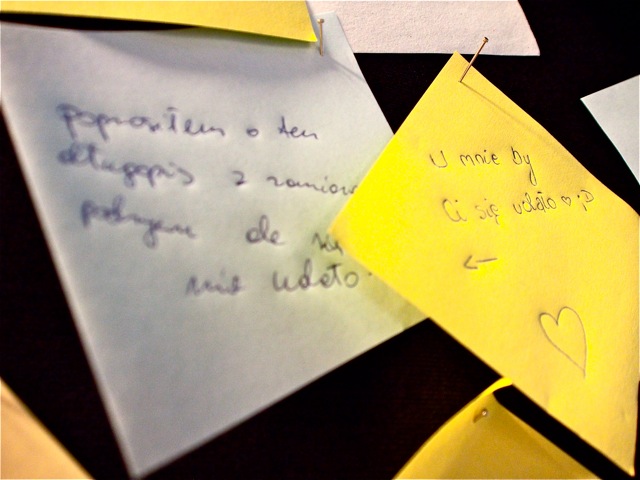 poprosiłem o ten
długopis z zamiarem
podrywu ale się
nie udało
U mnie by
Ci się udało ♡ ;D
←